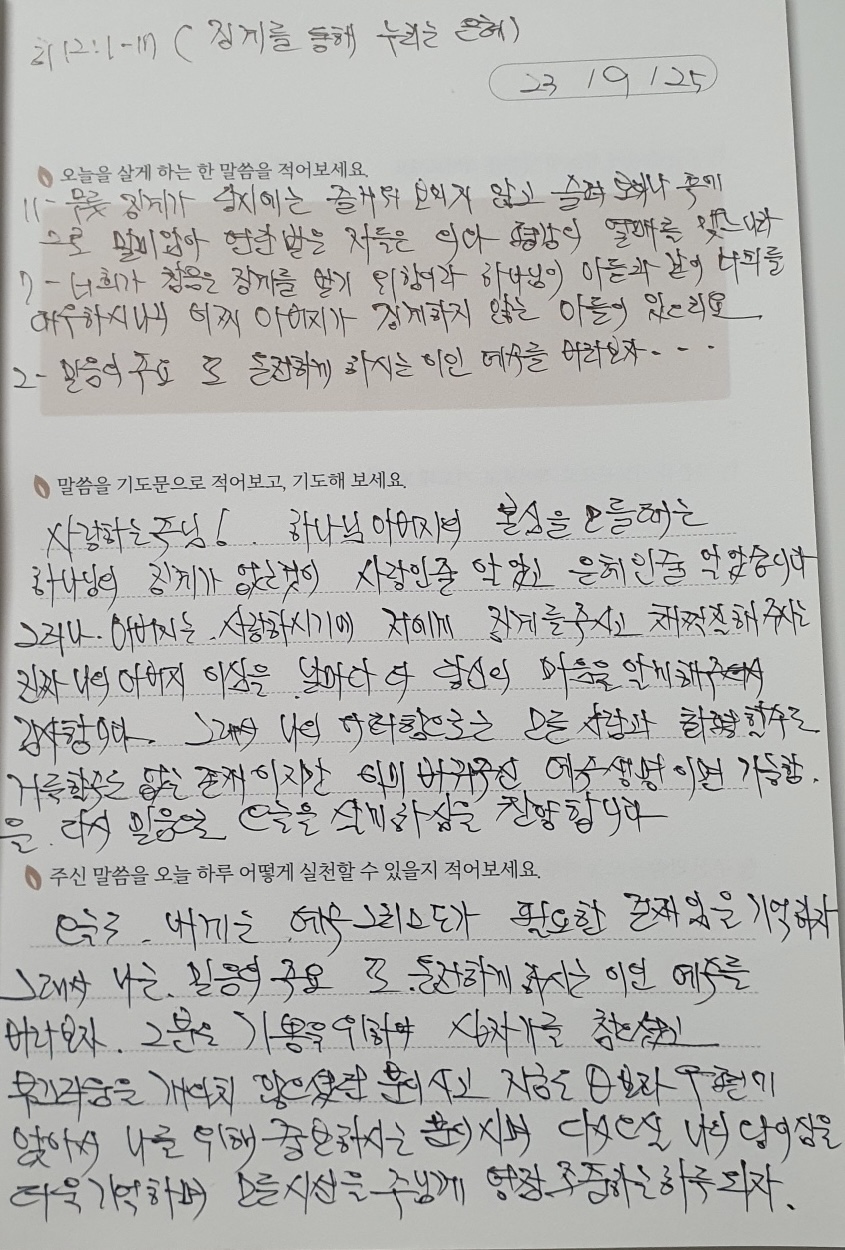 히12:1-17 (징계를 통해 누리는 은혜)
23 / 9 / 25
오늘을 살게 하는 한 말씀을 적어보세요.
11- 무릇 징계가 당시에는 즐거워 보이지 않고 슬퍼 보이나 후에
그로 말미암아 연단 받은 자들은 의와 평강의 열매를 맺느니라
7- 너희가 참음은 징계를 받기 위함이라 하나님이 아들과 같이 너희를
대우하시나니 어찌 아버지가 징계하지 않는 아들이 있으리요
2- 믿음의 주요 또 온전하게 하시는 이인 예수를 바라보자...
말씀을 기도문으로 적어보고, 기도해 보세요.
사랑하는 주님! 하나님 아버지의 본심을 모를때는
하나님의 징계가 없는것이 사랑인줄 알았고 은혜인줄 알았습니다
그러나 아버지는 사랑하시기에 저에게 징계를 주시고 채찍질해 주시는
진짜 나의 아버지 이심을 날마다 더 당신의 마음을 알게해주셔서
감사합니다. 그래서 나의 모든 사람과 화평함으로
거룩할수도 없는 존재이지만 이미 바꿔주신 예수생명이면 가능함.
을. 다시 믿음으로 오늘을 살게하심을 찬양합니다
주신 말씀을 오늘 하루 어떻게 실천할 수 있을지 적어보세요.
오늘도 내게는 예수그리스도가 필요한 존재임을 기억하자
그래서 나는 믿음의 주요 또 온전하게 하시는 이인 예수를
바라보자. 그분은 기쁨을 위하여 십자가를 참으셨고
부끄러움을 개의치 않으셨던 분이시고 지금도 하나님 보좌 우편에
앉아서 나를 위해 중보하시는 분이시며 다시오실 나의 왕이심을
더욱 기억하며 모든시선을 주님께 초점 조준하는 하루 되자.